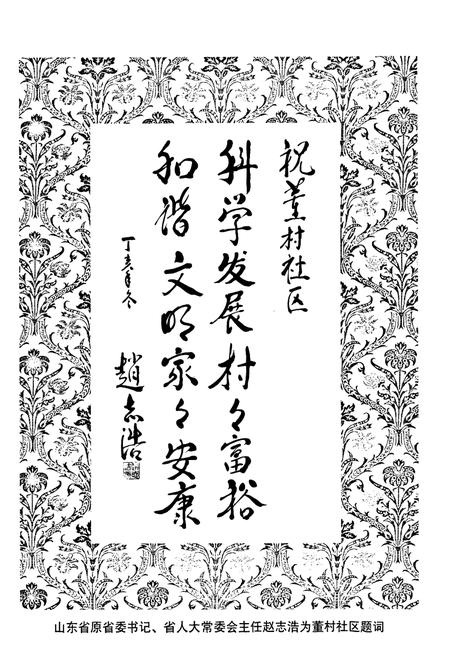 祝董村社区
科学发展村々富裕
和谐文明家々安康
丁亥年冬
趙志浩
山东省原省委书记、省人大常委会主任赵志浩为董村社区题词